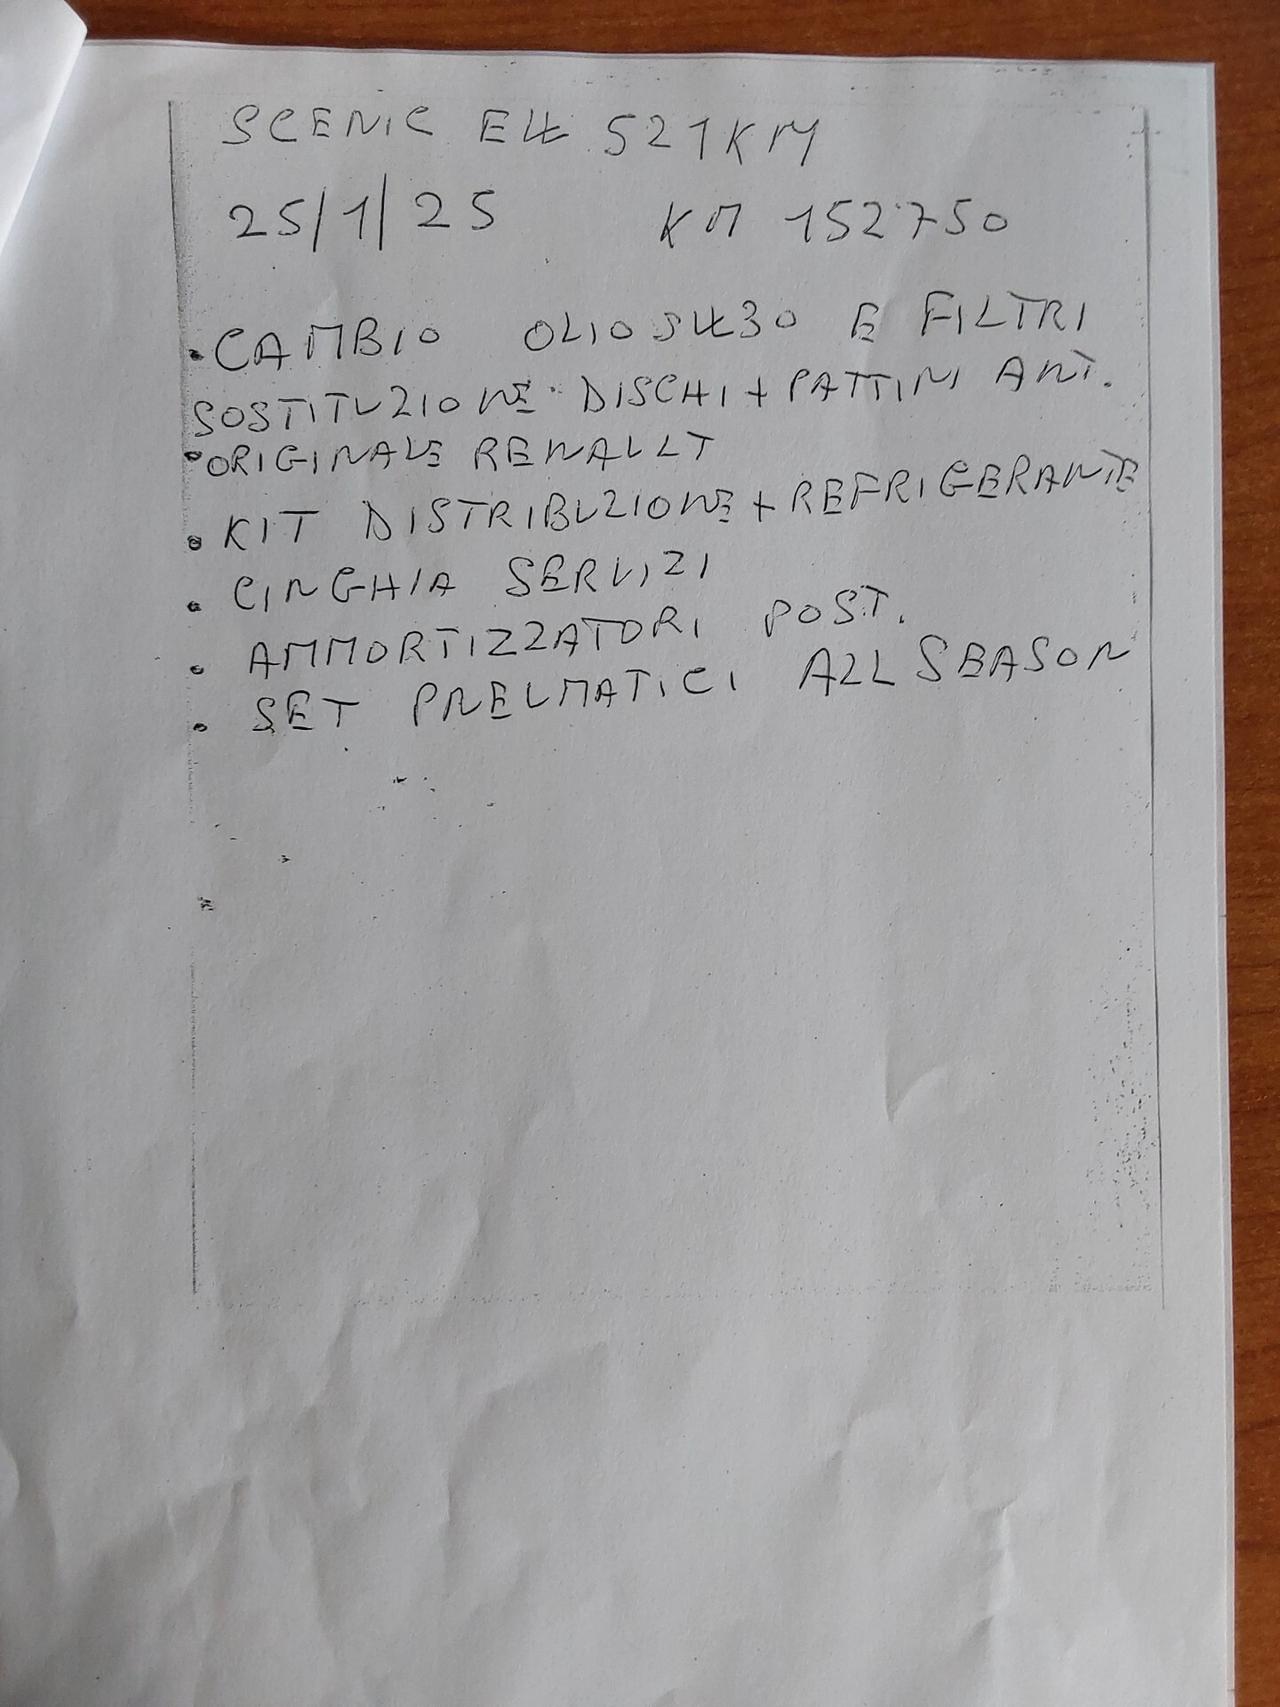 SCENIC EW 521KM
25/1/25 KM 152750
• CAMBIO OLIO 5W30 E FILTRI
SOSTITUZIONE DISCHI + PATTINI ANT.
• ORIGINALE RENAULT
• KIT DISTRIBUZIONE + REFRIGERANTE
• CINGHIA SERVIZI
• AMMORTIZZATORI POST.
• SET PNEUMATICI ALL SEASON